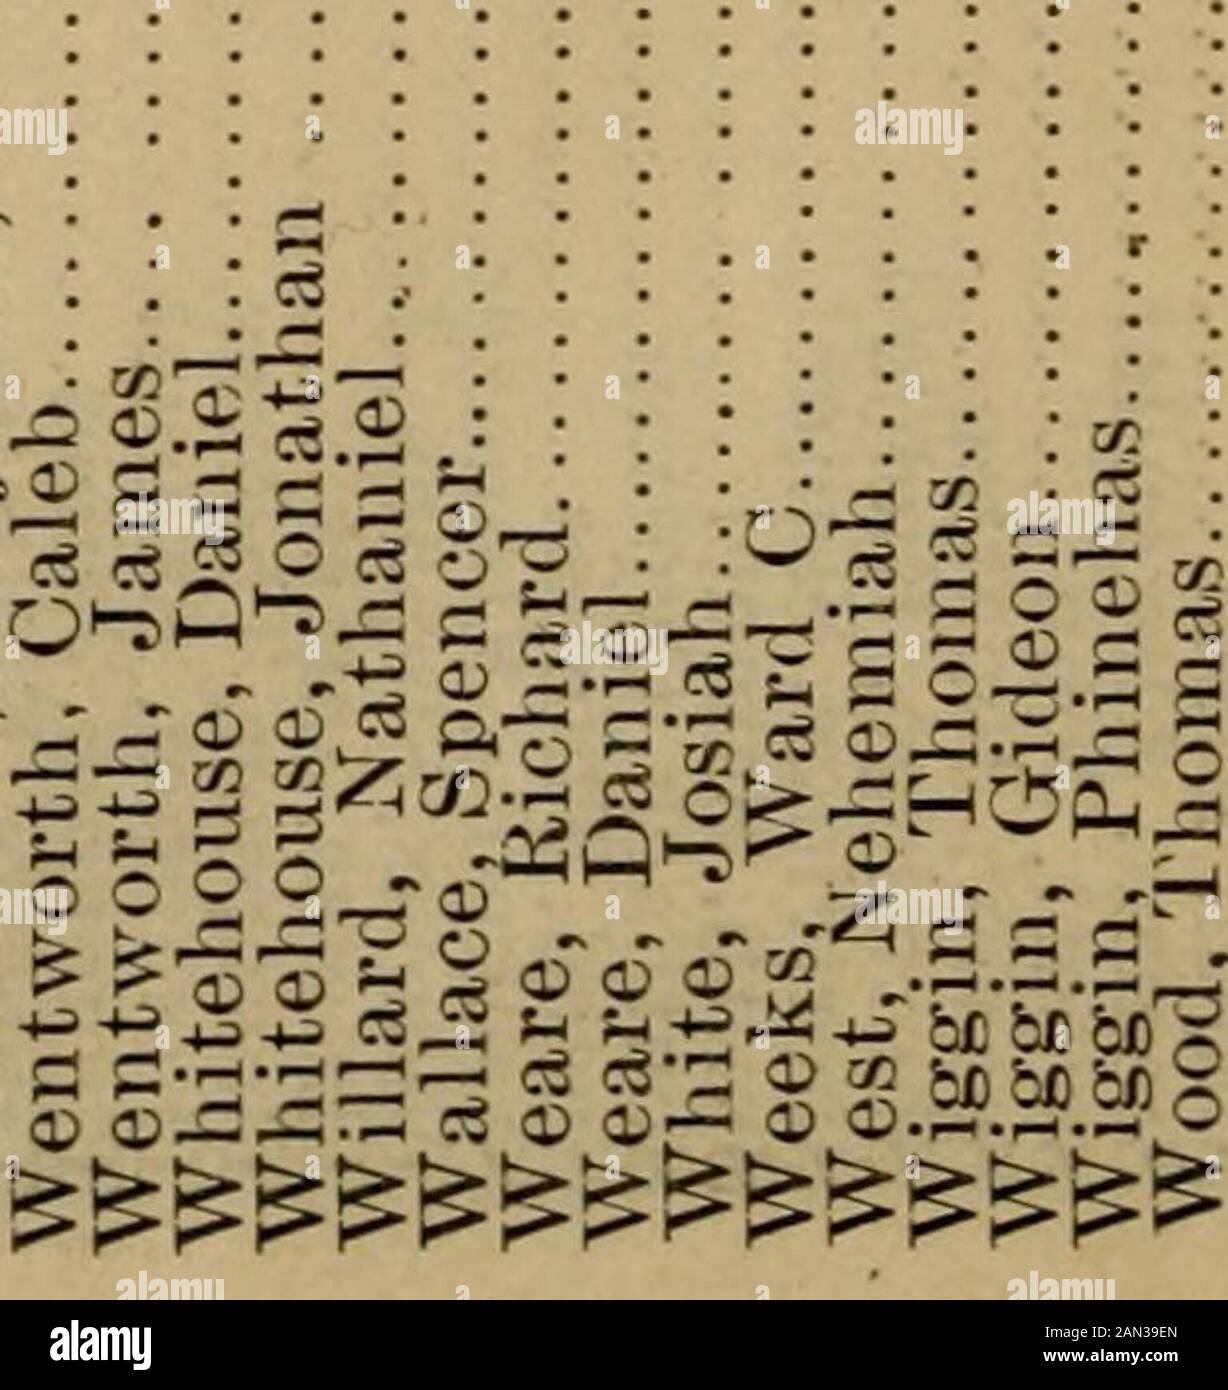 Wentworth, Caleb
Wentworth, James
Whitehouse, Daniel
Whitehouse, Jonathan
Willard, Nathaniel
Wallace, Spencer
Weare, Richard
Weare, Daniel
White, Josiah
Weeks, Ward C
West, Nehemiah
Wiggin, Thomas
Wiggin, Gideon
Wiggin, Phinehas
Wood, Thomas
alamy
Image ID: 2AN39EN
www.alamy.com